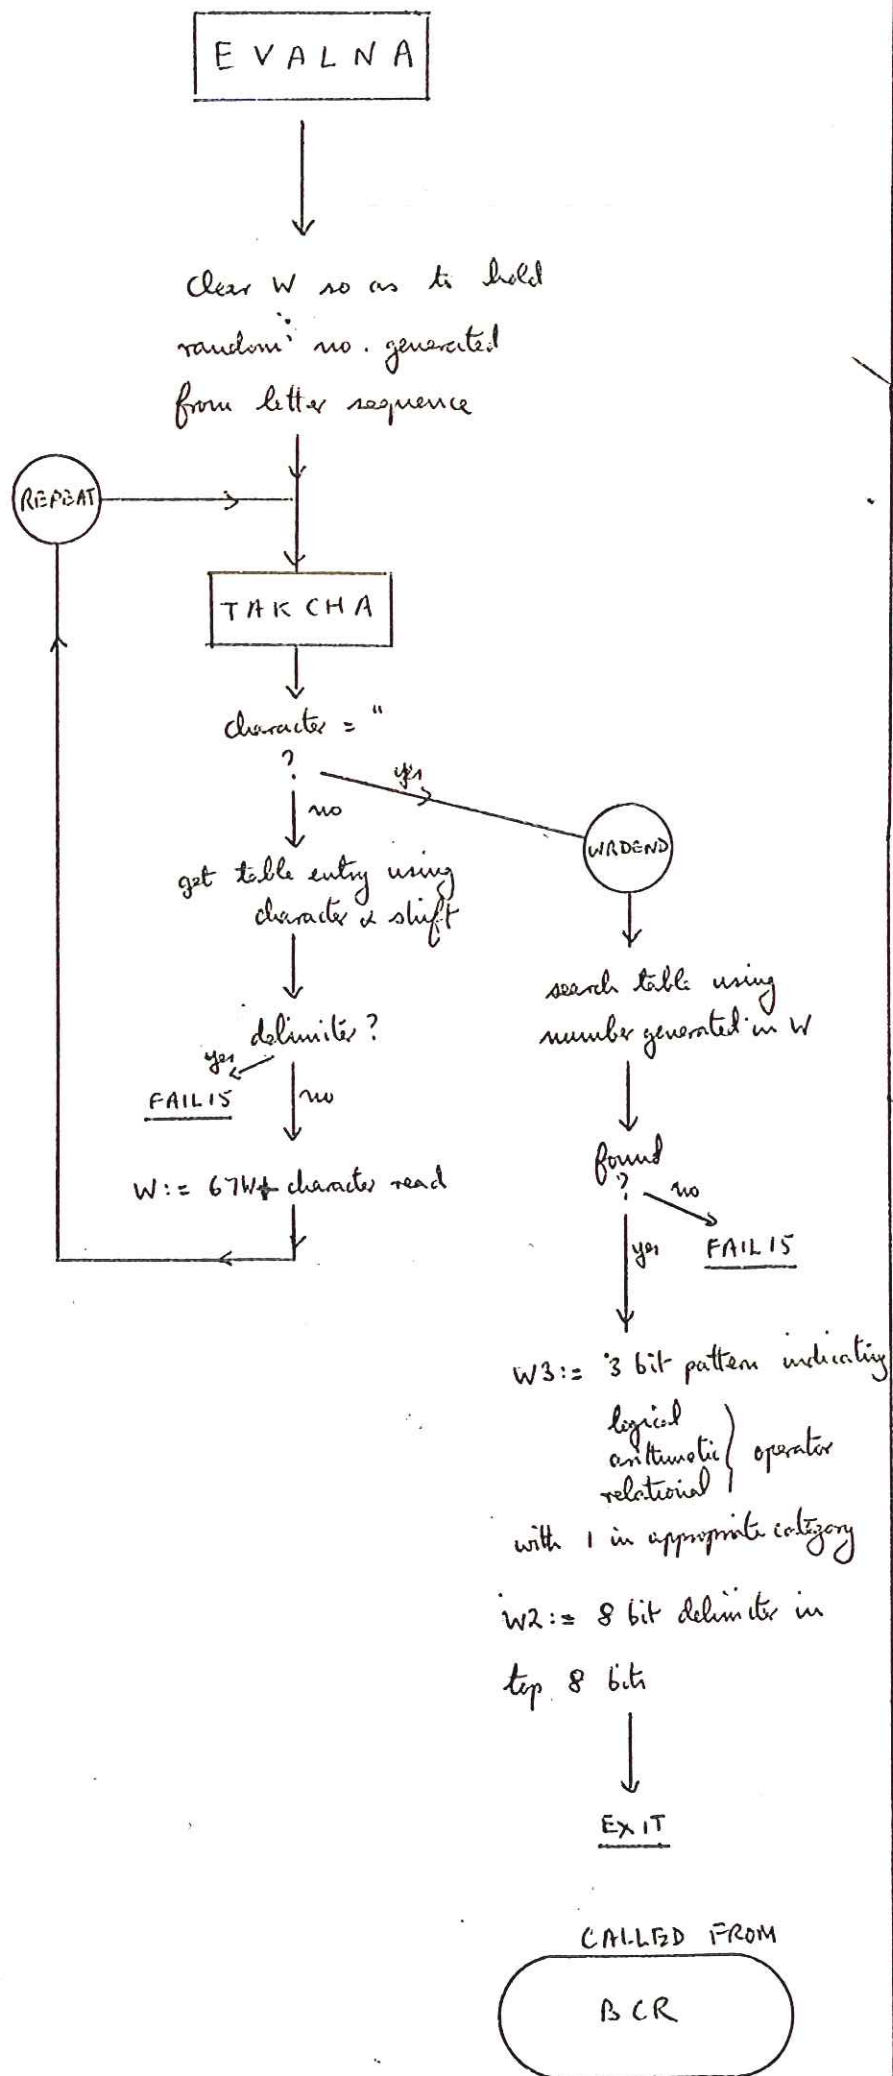 EVALNA
Clear W so as to hold
random no. generated
from letter sequence
REPEAT
TAKCHA
character = "
?
yes
no
WRDEND
get table entry using
character & shift
delimiter?
yes
FAIL15
no
W := 67W + character read
search table using
number generated in W
found
?
no
FAIL15
yes
W3 := 3 bit pattern indicating
logical
arithmetic } operator
relational
with 1 in appropriate category
W2 := 8 bit delimiter in
top 8 bits
EXIT
CALLED FROM
BCR